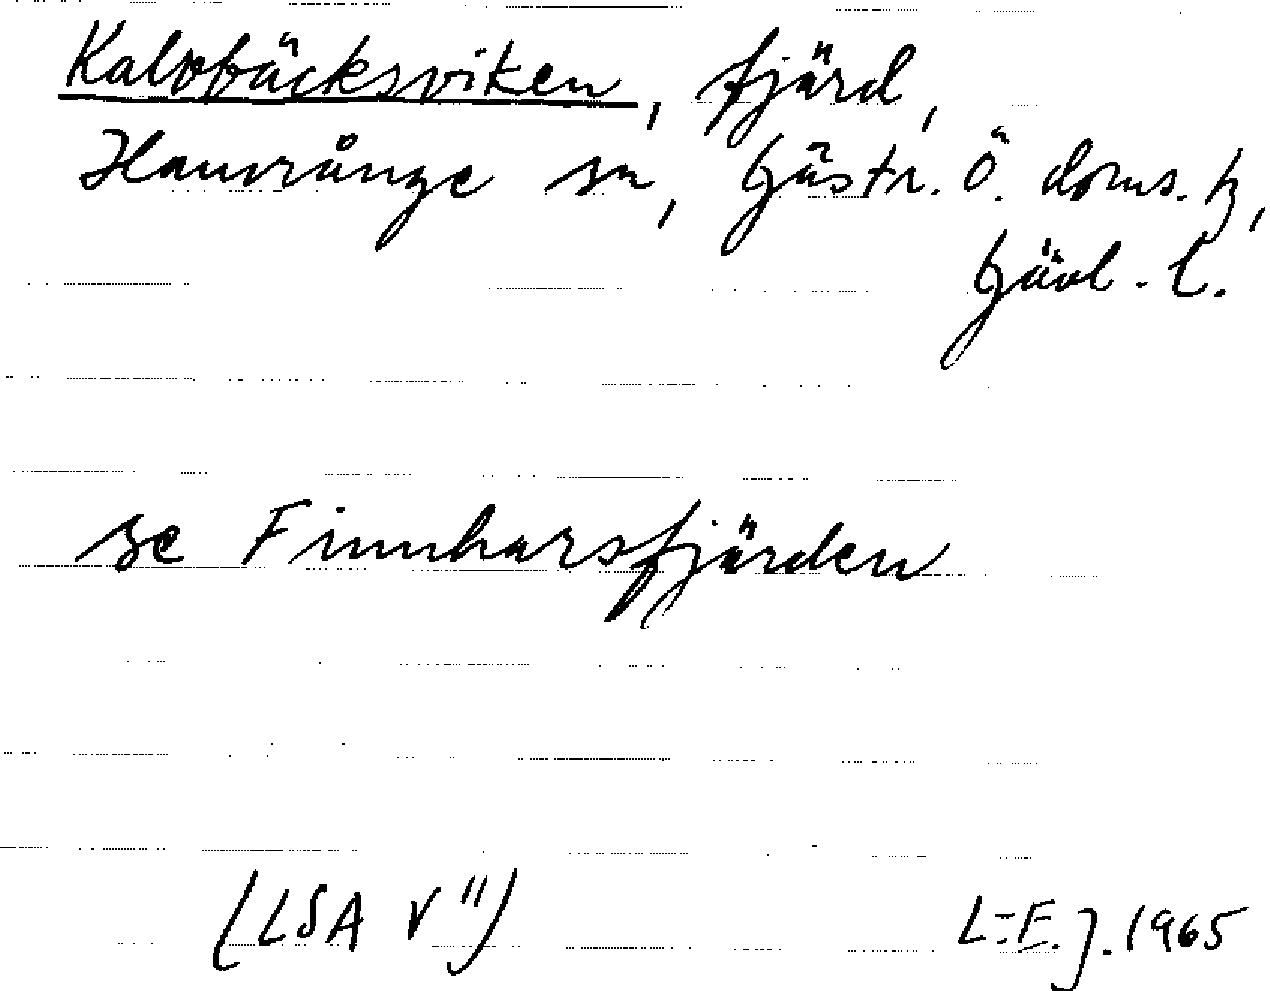 Kalvbäcksviken, fjärd,
Hamrånge sn, Gästr. Ö. doms. h,
Gävl. l.
se Finnharsfjärden
(LSA V")
L-E. J. 1965